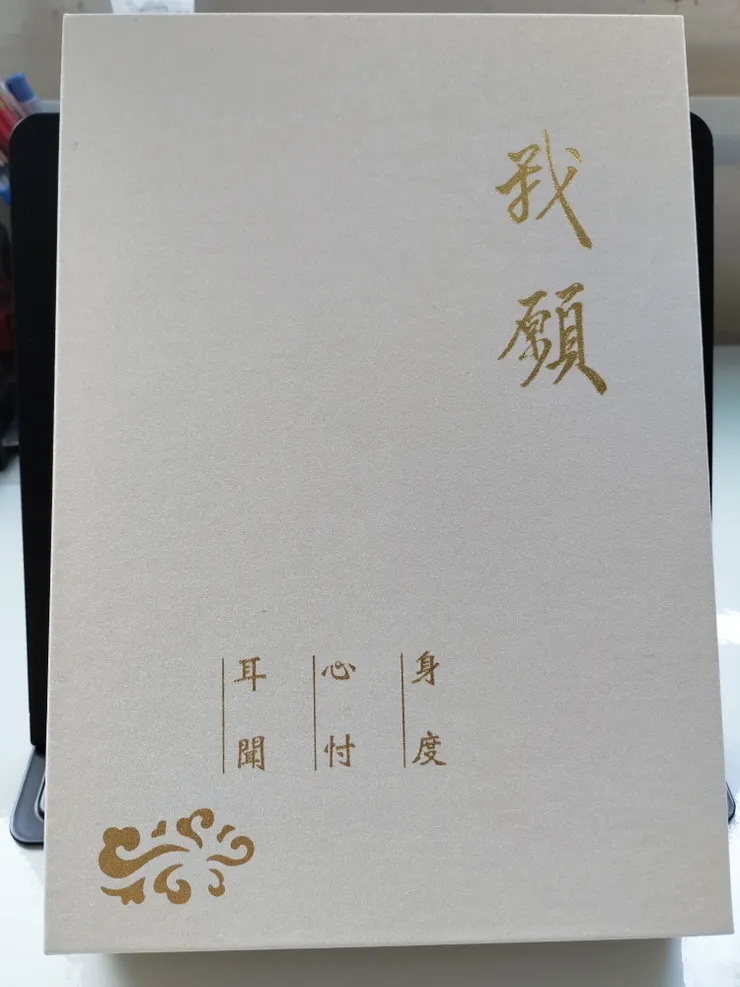 我願
身度
心忖
耳聞